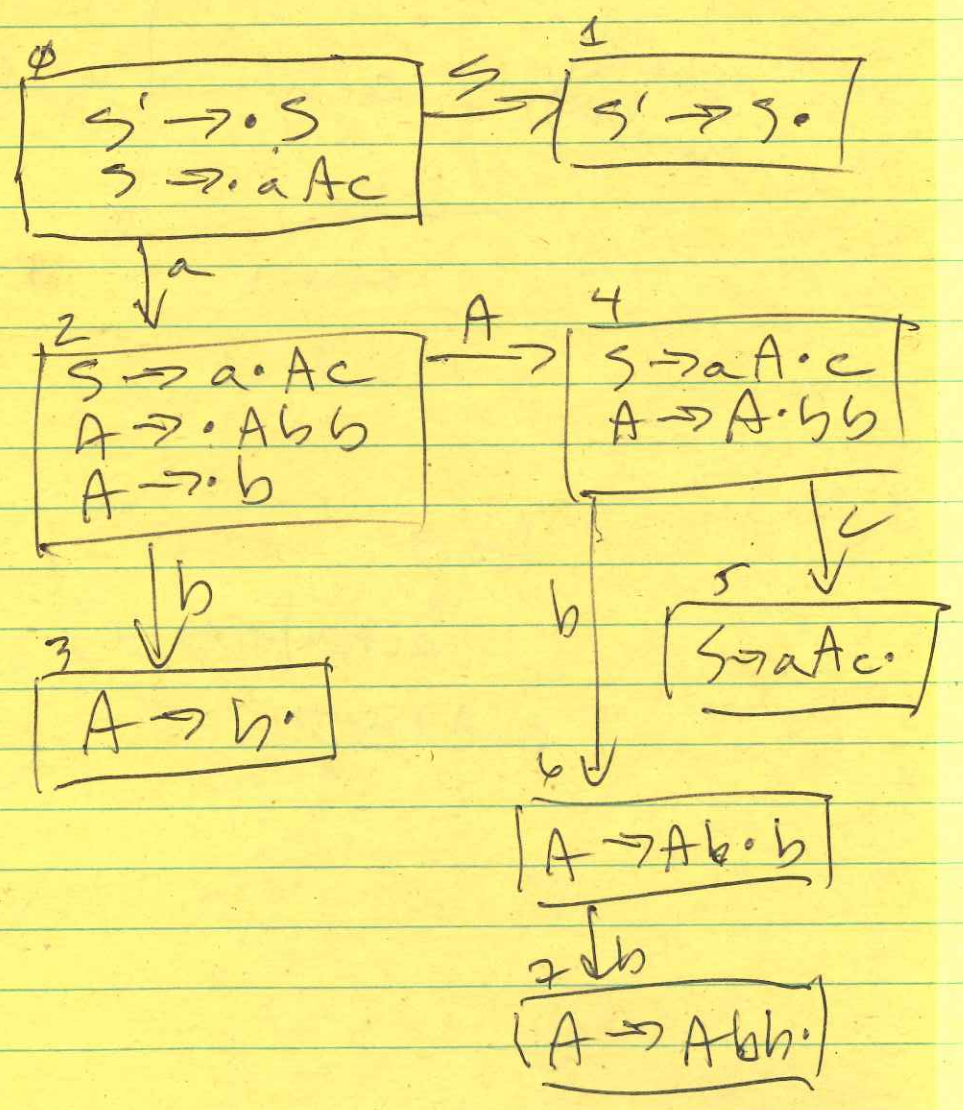 0
S' → . S
S → . a A c
S
1
S' → S .
a
2
S → a . A c
A → . A b b
A → . b
A
4
S → a A . c
A → A . b b
b
3
A → b .
b
c
5
S → a A c .
6
A → A b . b
b
7
A → A b b .